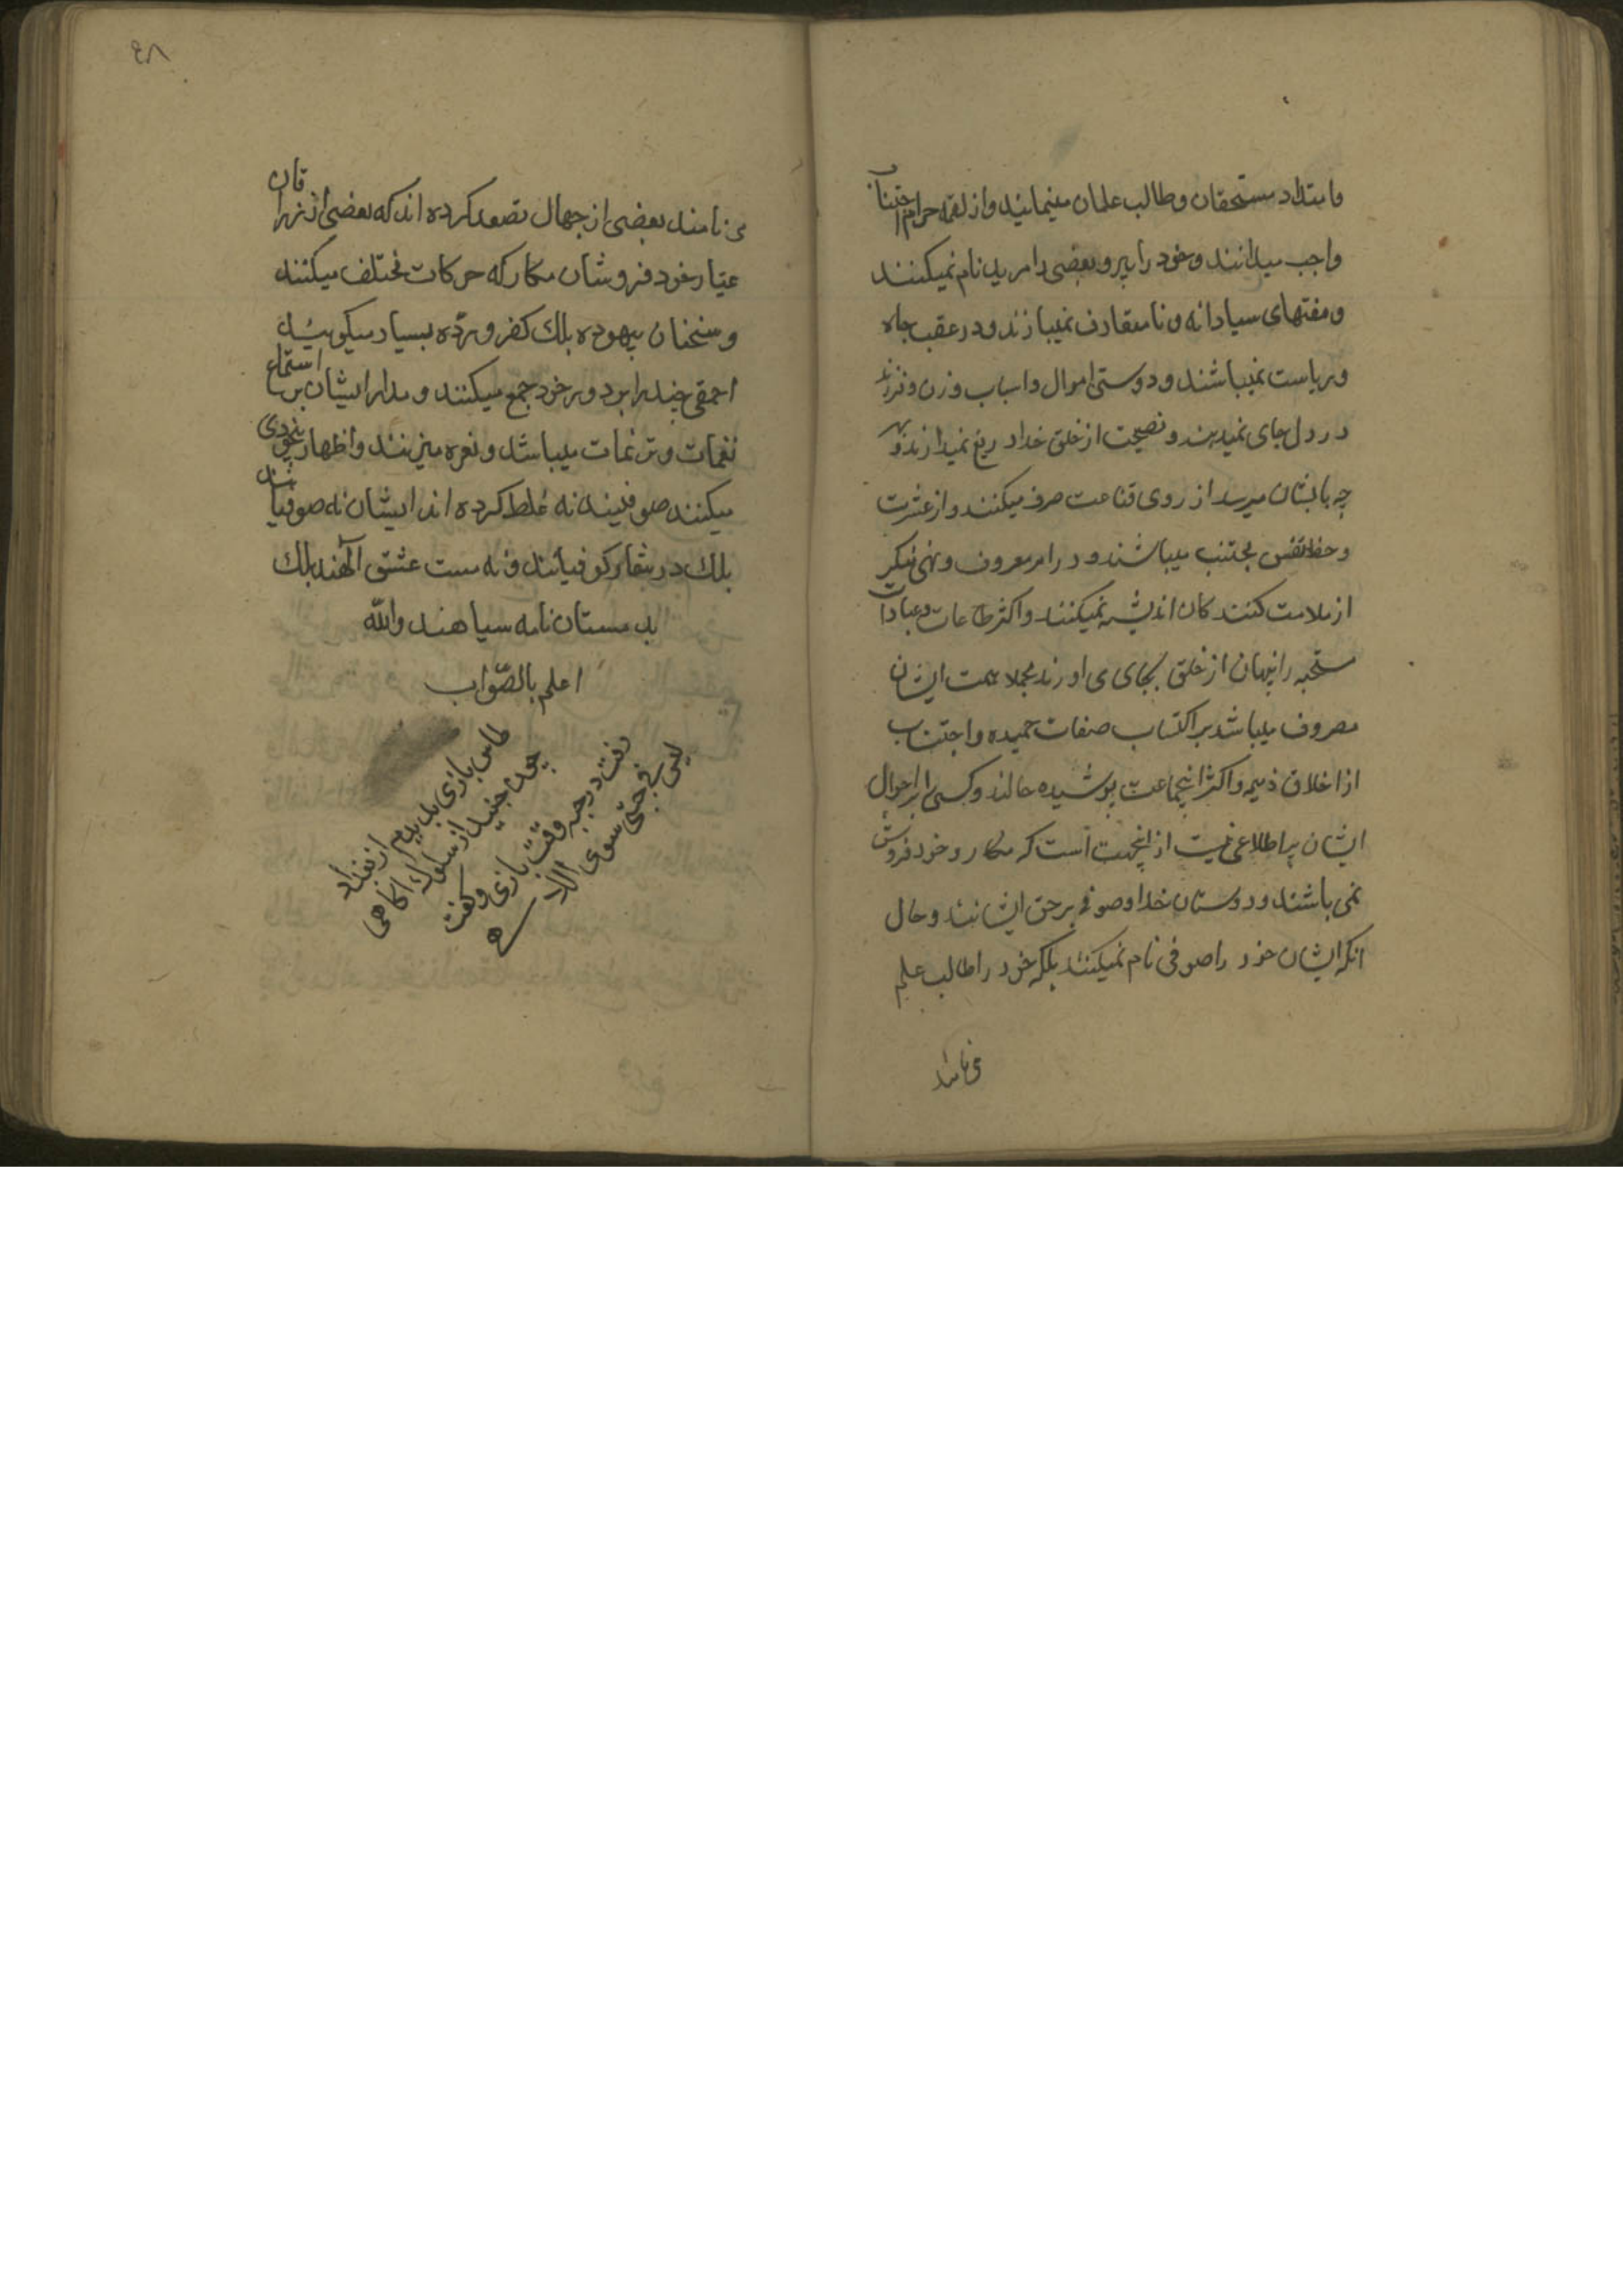 و امتداد مستحقان و طالب علمان مینمایند و از لقمه حرام اجتناب
واجب میدانند و خود را پیر و بعضی را مرید نام نمیکنند
و مفتهای سیادانه و نامتعارف نمیبازند و در عقب جاه
و ریاست نمیباشند و دوستی اموال و اسباب و زن و فرزند
در دل جای نمیدهند و نصیحت از خلق خدا دریغ نمیدارند و هر
چه بایشان میرسد از روی قناعت صرف میکنند و از عشرت
و حظ نفس مجتنب میباشند و در امر معروف و نهی منکر
از ملامت کنند کان اندیشه نمیکنند و اکثر طاعات و عبادات
مستحبه را پنهان از خلق بجای می اورند مجملا همت ایشان
مصروف میباشد بر اکتساب صفات حمیده و اجتناب
از اخلاق ذمیمه و اکثر اینجماعت پوشیده حالند و کسی را بر احوال
ایشان اطلاعی نیست از اینجهت است که مکار و خود فروش
نمی باشند و دوستان خدا و صوفی بر حق ایشانند و حال
انکه ایشان خود را صوفی نام نمیکنند بلکه خود را طالب علم
می نامند
٤٨
می نامند بعضی از جهال تصور کرده اند که بعضی از زراقان
عیار خود فروشان مکار که حرکات مختلف میکنند
و سخنان بیهوده بلك کفر و رده بسیار میکویند
احمقی چند را بر دور خود جمع میکنند و مدار ایشان بر استماع
نغمات و ترنمات میباشد و نعره میزنند و اظهار بیخودی
میکنند صوفیند نه غلط کرده اند ایشان نه صوفیانند
بلك در شمار کوفیانند و نه مست عشق الهند بلك
بد مستان نامه سیاهند والله
اعلم بالصواب
طاس بازی بدیدم از بغداد
چون جنید از سلوك اکاهی
رفت در جبه وقت بازی و کفت
لیس فی جبتی سوی الله